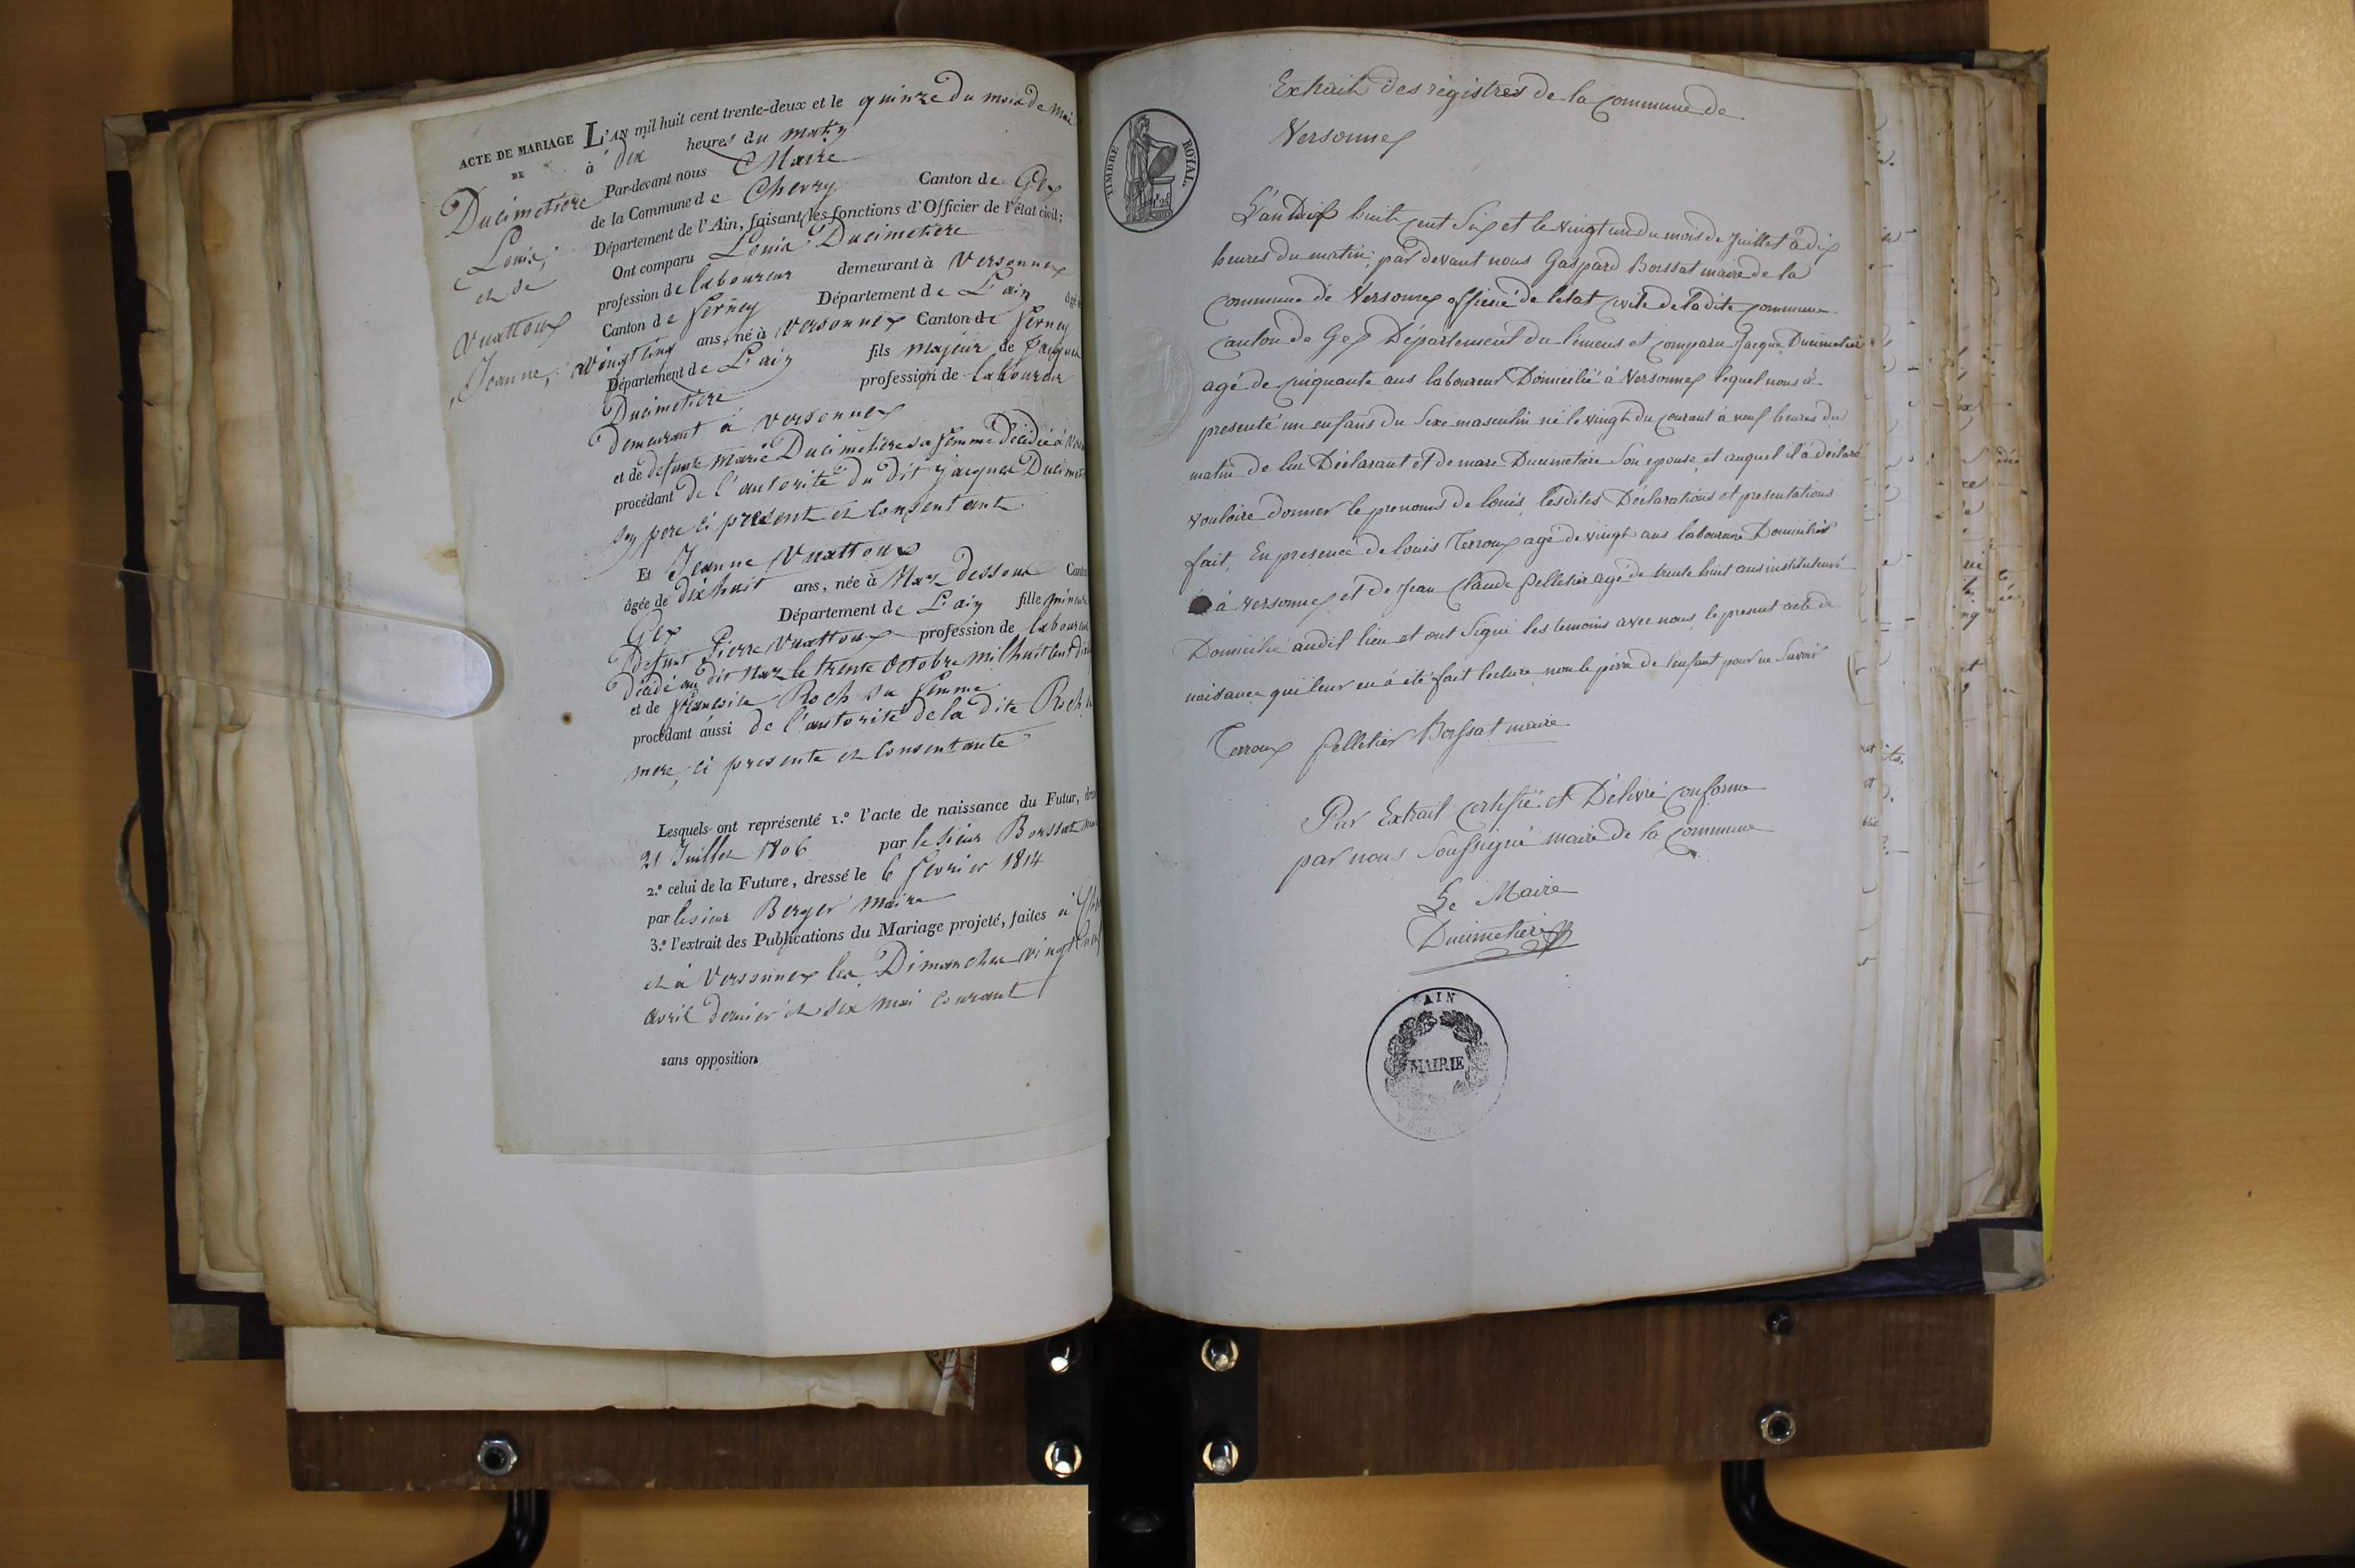 ACTE DE MARIAGE
DE
Ducimetiere
Louis,
et de
Vuattoux
Jeanne,
L'AN mil huit cent trente-deux et le quinze du mois de mai
à dix heures du matin
Par-devant nous Maire
de la Commune de Chevry Canton de Gex
Département de l'Ain, faisant les fonctions d'Officier de l'état civil;
Ont comparu Louis Ducimetiere
profession de laboureur demeurant à Versonnex
Canton de ferney Département de L'ain âgé
vingt cinq ans, né à Versonnex Canton de ferney
Département de L'ain fils majeur de Jacques
Ducimetiere profession de laboureur
Demeurant à Versonnex
et de defunte Marie Ducimetiere sa femme Décédée à
procédant de l'autorité du dit jacques
son pere ci present et Consentant
Et Jeanne Vuattoux
âgée de dixhuit ans, née à Naz dessous
Gex Département de L'ain fille mineure
defunt Pierre Vuattoux profession de laboureur
Décédé au dit Naz le trente Octobre mil huit cent
et de françoise Roch sa femme
procédant aussi de l'autorité de la dite Roch
mere, ci presente et Consentante
Lesquels ont représenté 1.º l'acte de naissance du Futur,
21 Juillet 1806 par le sieur Borssat
2.º celui de la Future, dressé le 6 fevrier 1814
par le sieur Berger maire
3.º l'extrait des Publications du Mariage projeté, faites à
et à Versonnex les Dimanches vingt neuf
avril dernier et six mai courant
sans opposition
TIMBRE ROYAL.
Extrait des régistres de la commune de
Versonnex
L'an Dix huit cent Six et le vingt un du mois de Juillet à dix
heures du matin, par devant nous Gaspard Borssat maire de la
commune de Versonnex officié de l'état civile de la dite commune
canton de Gex Département du Lémens et comparu Jacque Ducimetier
agé de cinquante ans laboureur Domicilié à Versonnex lequel nous à
presenté un enfans du Sexe masculin né le vingt du courant à neuf heures du
matin de lui Déclarant et de marie Ducimetiere Son epouse, et auquel il à déclaré
vouloire donner le prenoms de louis, lesdites Déclarations et presentations
fait, En presence de louis Terroux agé de vingt ans laboureur Domicilié
à Versonnex et de Jean Claude Pelletier agé de trente huit ans instituteur
Domicilié audit lieu et ont Signé les temoins avec nous, le present acte de
naisance qui leur en à été fait lecture non le père de l'enfant pour ne Savoir
Terroux Pelletier Borssat maire
Par Extrait certifié et Délivré conforme
par nous Soussigné maire de la commune
Le Maire
Ducimetiere
AIN
MAIRIE